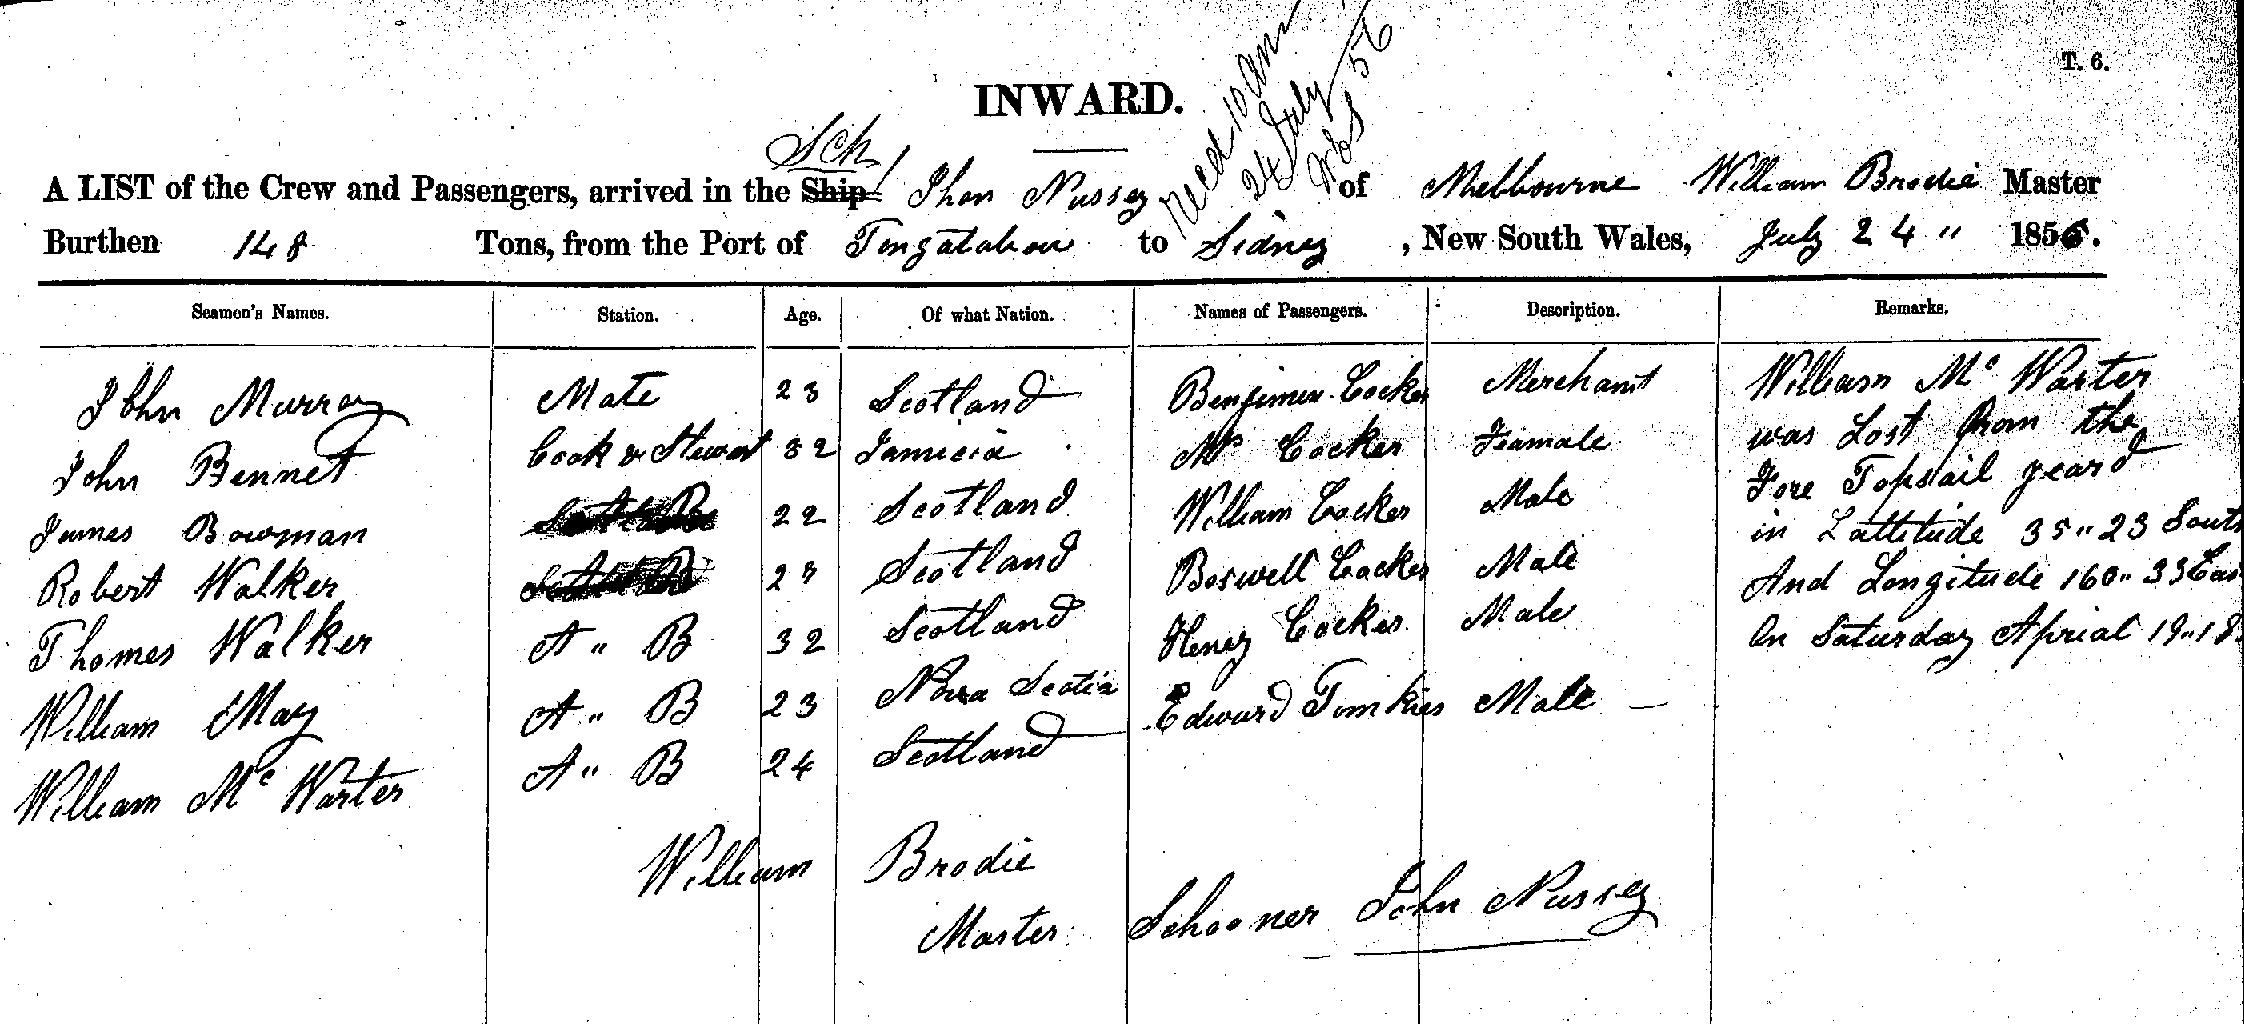 T. 6.
INWARD.
Recd 10 am
24 July 56
Sch
A LIST of the Crew and Passengers, arrived in the Ship Jhon Nussey of Melbourne William Brodie Master
Burthen 148 Tons, from the Port of Tongatabou to Sidney , New South Wales, July 24 " 1856.
Seamen's Names. Station. Age. Of what Nation. Names of Passengers. Description. Remarks.
John Murray Mate 23 Scotland Benjimen Cocker Merchant William Mc Warter
John Bennet Cook & Stewart 32 Jamicia Mrs Cocker Feamale was Lost from the
James Bowman 22 Scotland William Cocker Male Fore Topsail yeard
Robert Walker Scotland Boswell Cocker Male in Lattitude 35" 23 South
Thomes Walker A " B 32 Scotland Henry Cocker Male And Longitude 160" 33 Eas
William May A " B 23 Nova Scotia Edward Tomkies Male On Saturday Aprial 19" 18
William Mc Warter A " B 24 Scotland
William Brodie
Master Schooner John Nussey